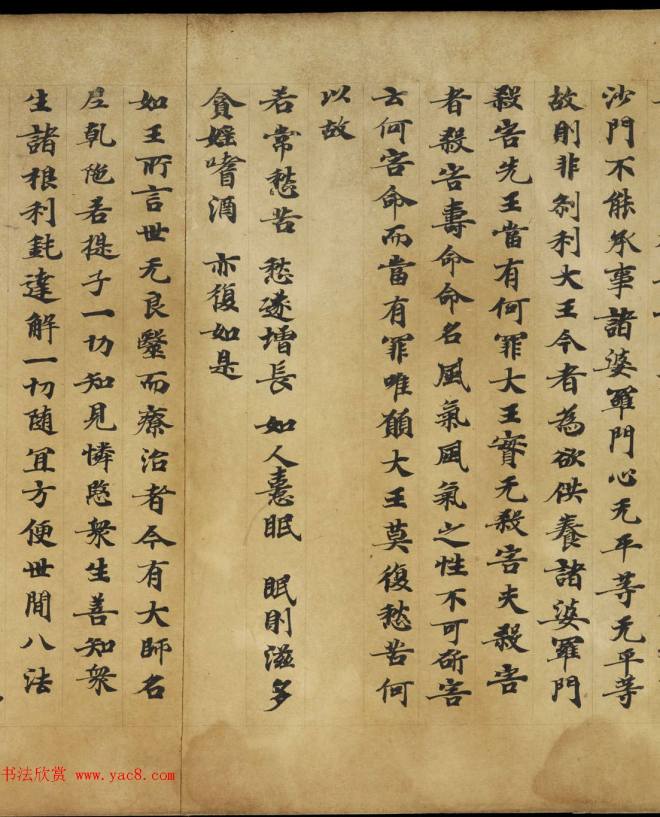 沙門不能承事諸婆羅門心无平等无平等
故則非刹利大王今者為欲供養諸婆羅門
殺害先王當有何罪大王實无殺害夫殺害
者殺害壽命命名風氣風氣之性不可斫害
云何害命而當有罪唯願大王莫復愁苦何
以故
若常愁苦 愁遂增長 如人憙眠 眠則滋多
貪婬嗜酒 亦復如是
如王所言世无良毉而療治者今有大師名
尼乹陁若提子一切知見憐愍衆生善知衆
生諸根利鈍達解一切隨宜方便世間八法
书法欣赏 www.yac8.com